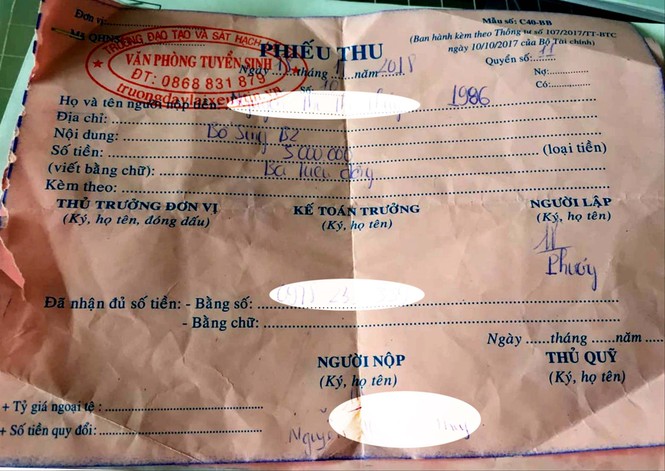 Đơn vị
Mẫu số: C40-BB
Mã QHNS
(Ban hành kèm theo Thông tư số 107/2017/TT-BTC
ngày 10/10/2017 của Bộ Tài chính)
TRƯỜNG ĐÀO TẠO VÀ SÁT HẠCH
VĂN PHÒNG TUYỂN SINH
ĐT: 0868 831 879
PHIẾU THU
Quyển số:
Ngày tháng năm 2018
Nợ:
Số:
Có:
Họ và tên người nộp 1986
Địa chỉ:
Nội dung: Bổ sung B2
Số tiền: 3000000 (loại tiền)
(viết bằng chữ): Ba triệu đồng
Kèm theo:
THỦ TRƯỞNG ĐƠN VỊ KẾ TOÁN TRƯỞNG NGƯỜI LẬP
(Ký, họ tên, đóng dấu) (Ký, họ tên) (Ký, họ tên)
Đã nhận đủ số tiền: - Bằng số:
- Bằng chữ:
Ngày ......tháng ......năm ......
NGƯỜI NỘP THỦ QUỸ
(Ký, họ tên) (Ký, họ tên)
+ Tỷ giá ngoại tệ :
+ Số tiền quy đổi: